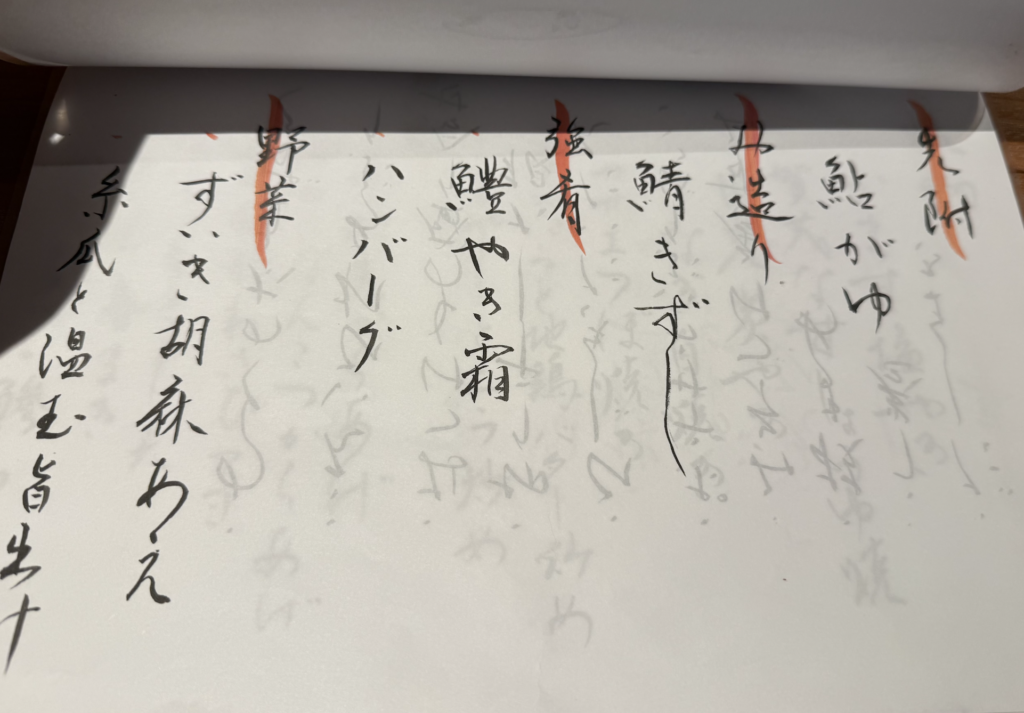 先附
鮎がゆ
お造り
鯖きずし
強肴
鱧やき霜
ハンバーグ
野菜
ずいき胡麻あえ
糸瓜と温玉旨出汁